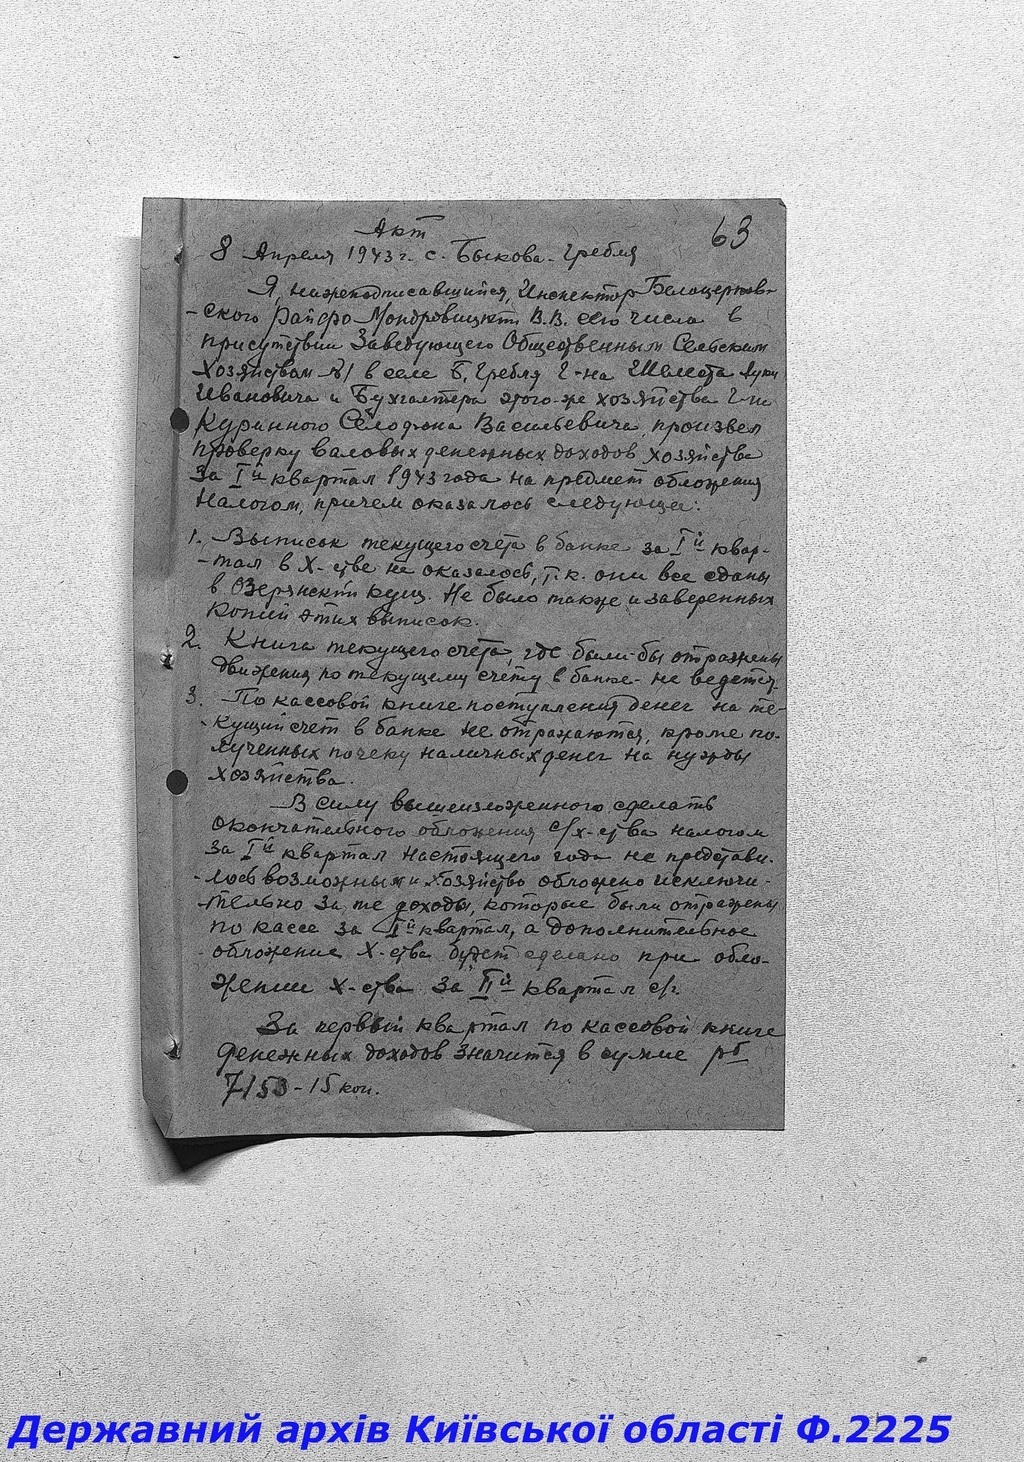 63
Акт
8 Апреля 1943 г. с. Быкова-Гребля
Я, нижеподписавшийся, Инспектор Белоцерков-
-ского Райфо В.В. сего числа в
присутствии Заведующего Общественным Сельским
Хозяйством №1 в селе Б. Гребля г-на Шмота Луки
Ивановича и Бухгалтера этого-же хозяйства г-на
Куринного Василь́евича, произвел
проверку валовых денежных доходов хозяйства
за Iй квартал 1943 года на предмет обложения
налогом, причем оказалось следующее:
1. Выписок текущего счета в банке за Iй квар-
-тал в Х-стве не оказалось, т.к. они все сданы
в Озерянский кущ. Не было также и заверенных
копий этих выписок.
2. Книга текущего счета, где были-бы отражены
движения по текущему счету в банке - не ведется.
3. По кассовой книге поступления денег на те-
-кущий счет в банке не отражаются, кроме по-
лученных по чеку наличных денег на нужды
хозяйства.
В силу вышеизложенного сделать
окончательного обложения с/х-ства налогом
за Iй квартал настоящего года не представи-
-лось возможным и хозяйство обложено исключи-
-тельно за те доходы, которые были отражены
по кассе за Iй квартал, а дополнительное
обложение Х-ства будет сделано при обло-
жении Х-ства за IIй квартал с/г.
За первый квартал по кассовой книге
денежных доходов значится в сумме рб
7153-15 коп.
Державний архів Київської області Ф.2225